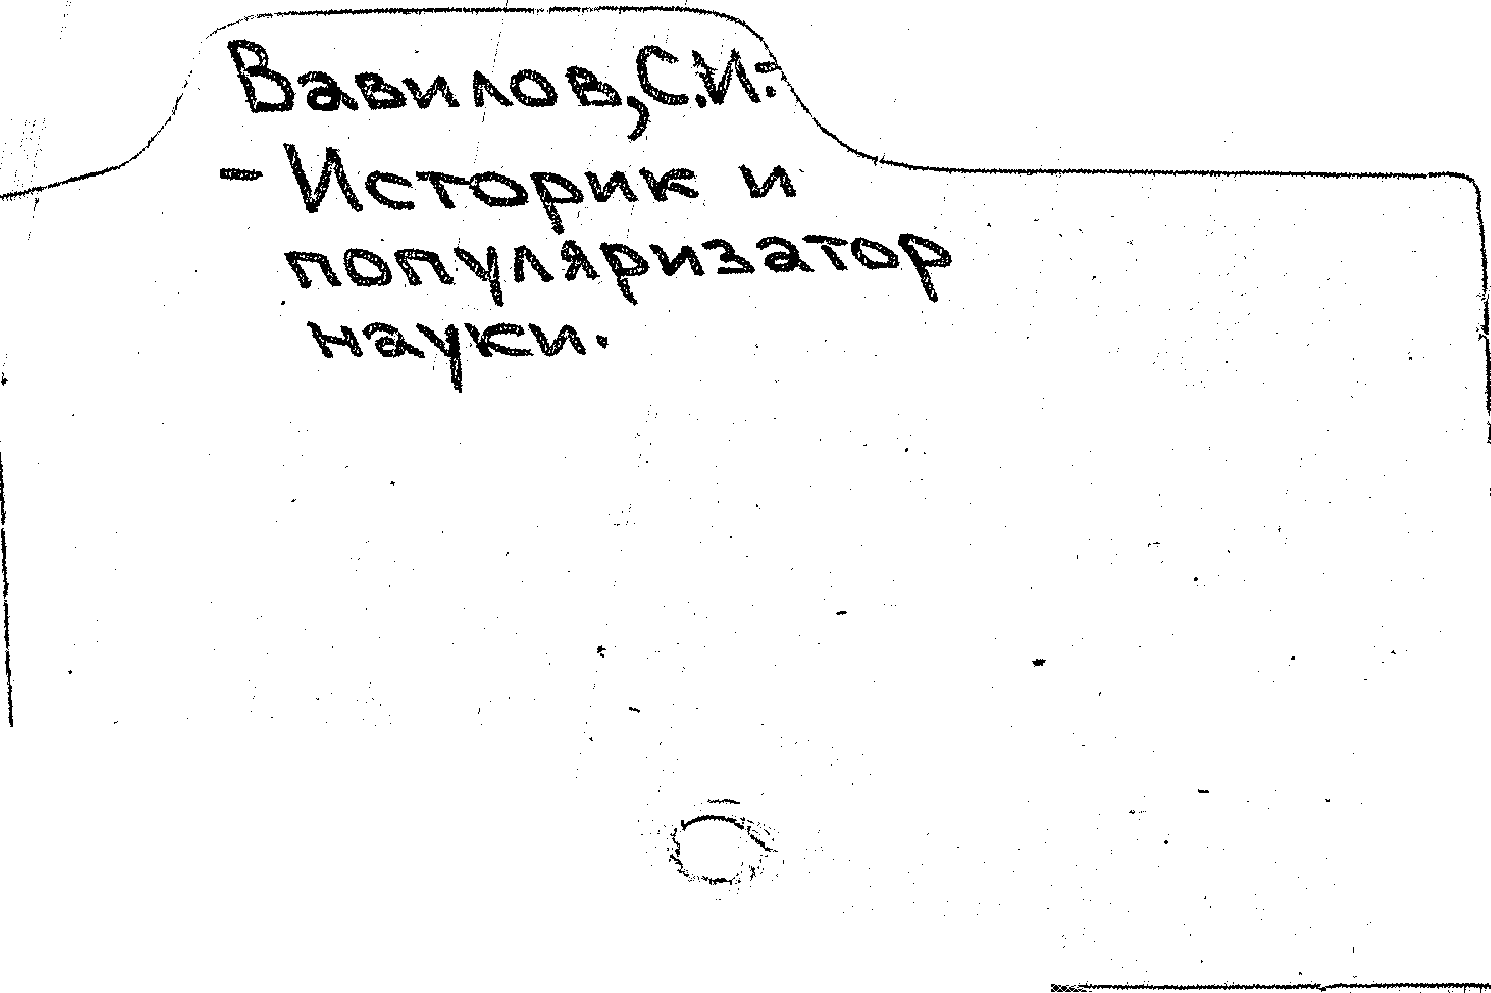 Вавилов, С.И.-
- Историк и
популяризатор
науки.